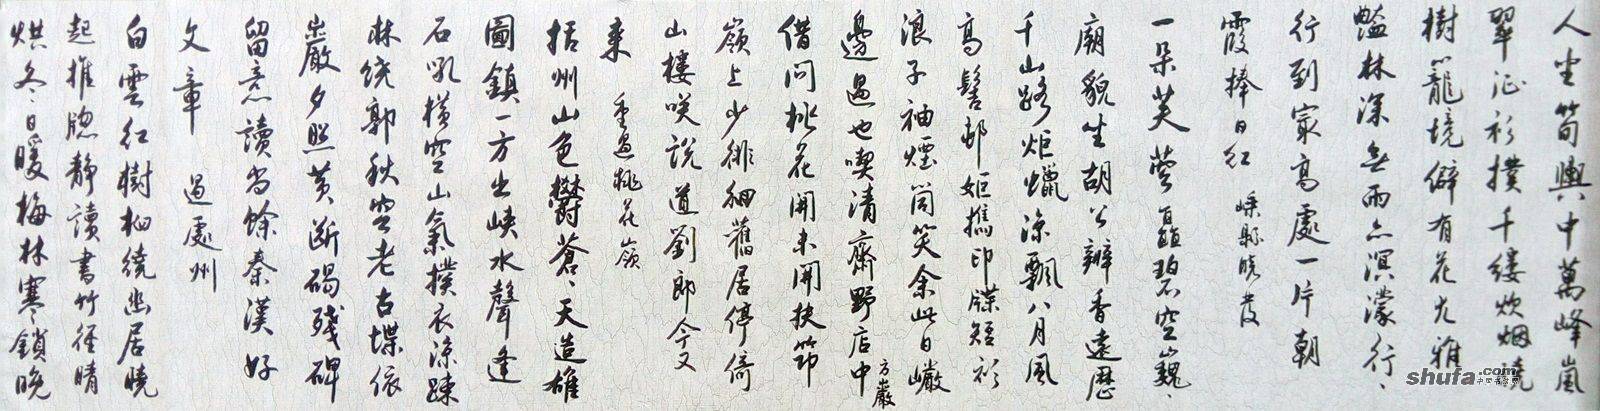 人坐筍輿中萬峰嵐
翠沾衫撲千縷炊烟繞
樹籠境僻有花尤雅
豔林深無雨亦溟濛行行
行到家高處一片朝
霞捧日紅 嵊縣曉發
一朵芙蓉矗碧空巍巍
廟貌坐胡公瓣香遠歷
千山路炬蠟涼飄八月風
高髻邨姬攜印牒短衫
浪子袖煙筒笑余此日巖
邊過也喫清齋野店中 方巖
借問桃花開未開扶筇
嶺上少徘徊舊居停倚
山樓笑說道劉郎今又
來 重過桃花嶺
括州山色鬱蒼蒼天造雄
圖鎮一方出峽水聲逢
石吼橫空山氣撲衣涼疎
林繞郭秋空老古堞依
巖夕照黃斷碣殘碑
留意讀當餘秦漢好
文章 過處州
白雲紅樹相繞幽居曉
起推牕靜讀書竹徑晴
烘冬日暖梅林寒鎖晚
shufa.com